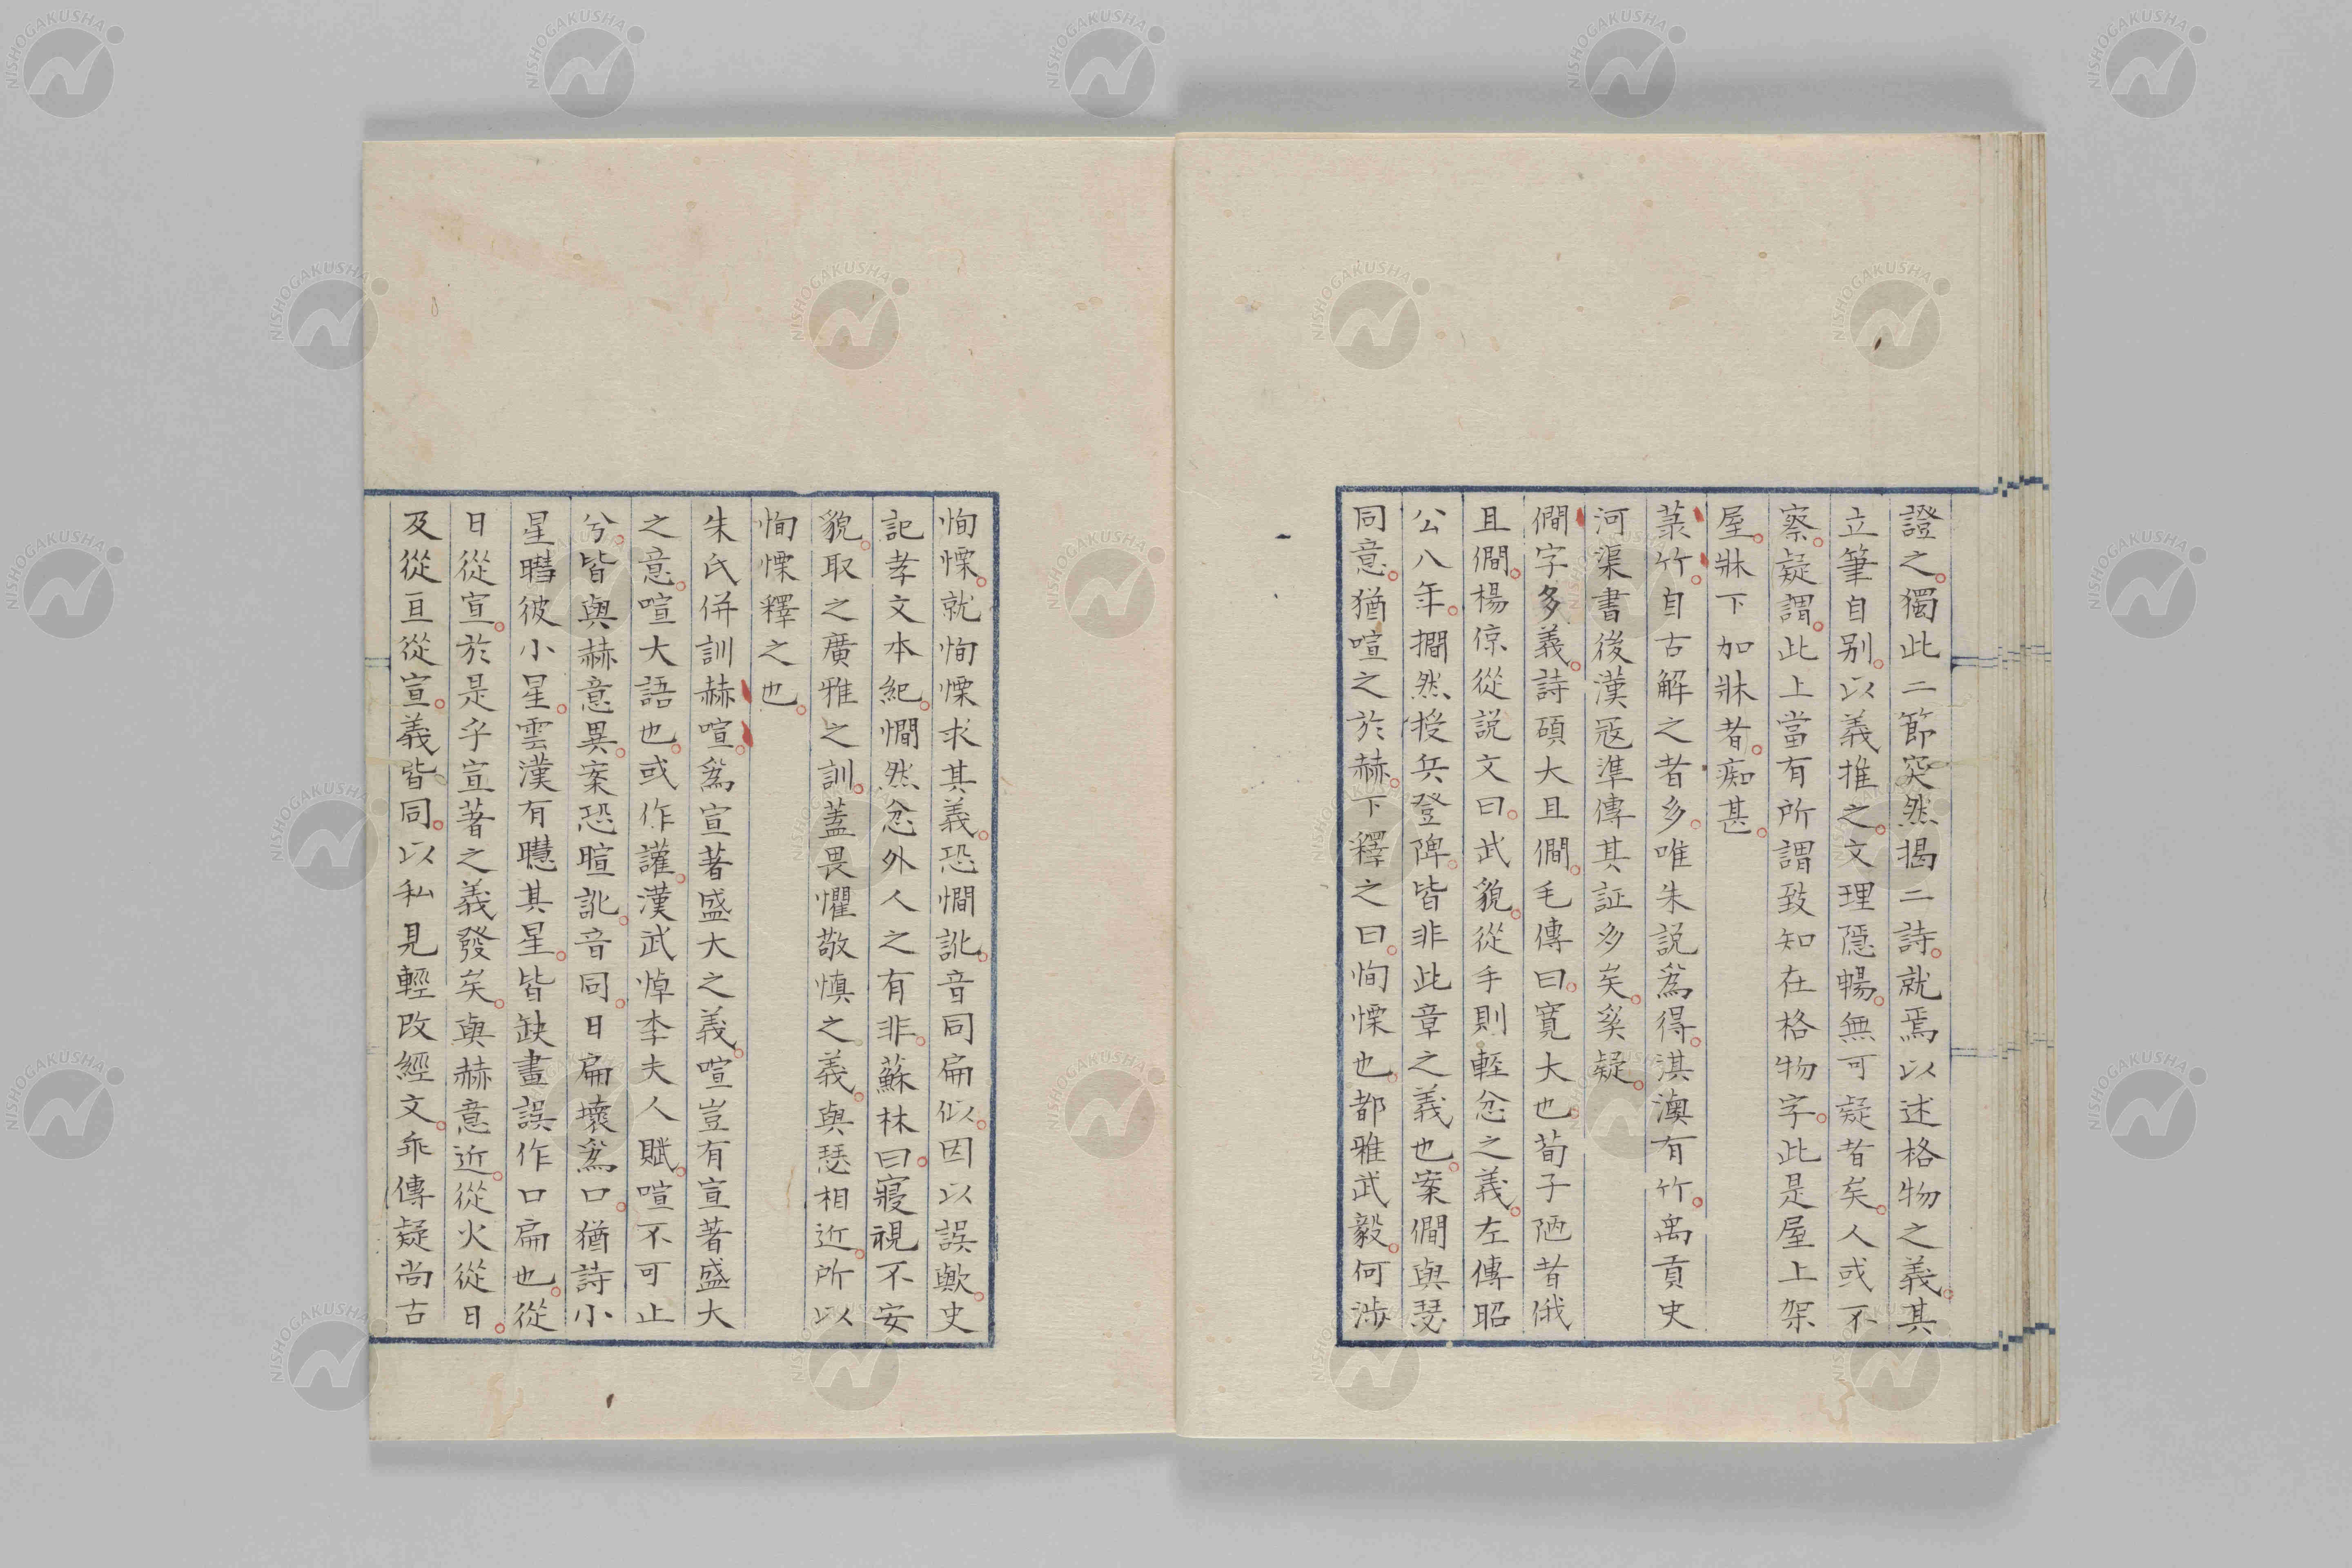 證之。獨此二節突然揭二詩。就焉以述格物之義。其
立筆自别。以義推之。文理隱暢。無可疑者矣。人或不
察。疑謂。此上當有所謂致知在格物字。此是屋上架
屋。牀下加牀者。痴甚。
菉竹。自古解之者多。唯朱説爲得。淇澳有竹。禹貢史
河渠書後漢冦準傳其証多矣。奚疑。
僩字多義。詩碩大且僩。毛傳曰。寛大也荀子陋者俄
且僩。楊倞從説文曰。武貌。從手則輕忿之義。左傳昭
公八年。撊然授兵登陴。皆非此章之義也。案僩與瑟
同意。猶喧之於赫。下釋之曰。恂慄也。都雅武毅。何渉
恂慄。就恂慄求其義。恐憪訛。音同扁似。因以誤歟。史
記孝文本紀。憪然忿外人之有非。蘇林曰。寢視不安
貌。取之廣雅之訓。蓋畏懼敬慎之義。與瑟相近。所以
恂慄釋之也。
朱氏併訓赫喧。爲宣著盛大之義。喧豈有宣著盛大
之意。喧大語也。或作讙。漢武悼李夫人賦。喧不可止
兮。皆與赫意異。案恐暄訛。音同。日扁壞爲口。猶詩小
星嘒彼小星。雲漢有嘒其星。皆缺畫誤作口扁也。從
日從宣。於是乎宣著之義發矣。與赫意近。從火從日。
及從亘從宣。義皆同。以私見輕改經文。乖傳疑尚古